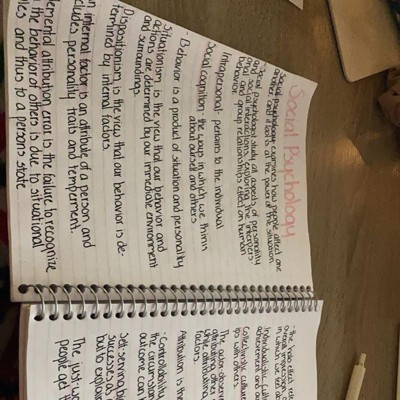 Social Psychology
Social psychology examines how people affect one
another, and it looks at the power of the situation
Social psychologist study all aspects of personality
and social interactions, exploring the
and group relationships effect on human
behavior
Intrapersonal - pertains to the individual
Social cognition - the ways in which we think
about ourself and others
- Behavior is a product of situation and personality
Situationism is the view that our behavior and
actions are determined by our immediate environment
and surroundings.
Dispositionism is the view that our behavior is de-
termined by internal factors
an internal factor is an attribute of a person and
includes personality traits and temperment.
attribution error is the failure to recognize
the behavior of others is due to situational
and thus to a persons state
the halo effect
overall impression
in which we
individualistic culture
achievement
Collectivistic culture
ship with others
The actor-observer
attributing other
while attributing
factors.
Attribution is the
- Controllability
the circumstan
outcome can
Self-serving bi
successes as
but to explai
The just-wo
people get th